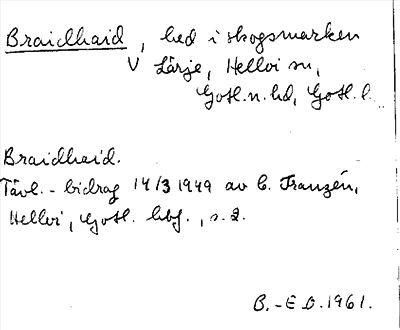 Braidhaid, hed i skogsmarken
V Lärje, Hellvi sn,
Gotl. n. hd, Gotl. l.
Braidhaid.
Tävl.-bidrag 14/3 1949 av C. Franzén,
Hellvi, Gotl. hbf., s. 2.
B.-E O. 1961.